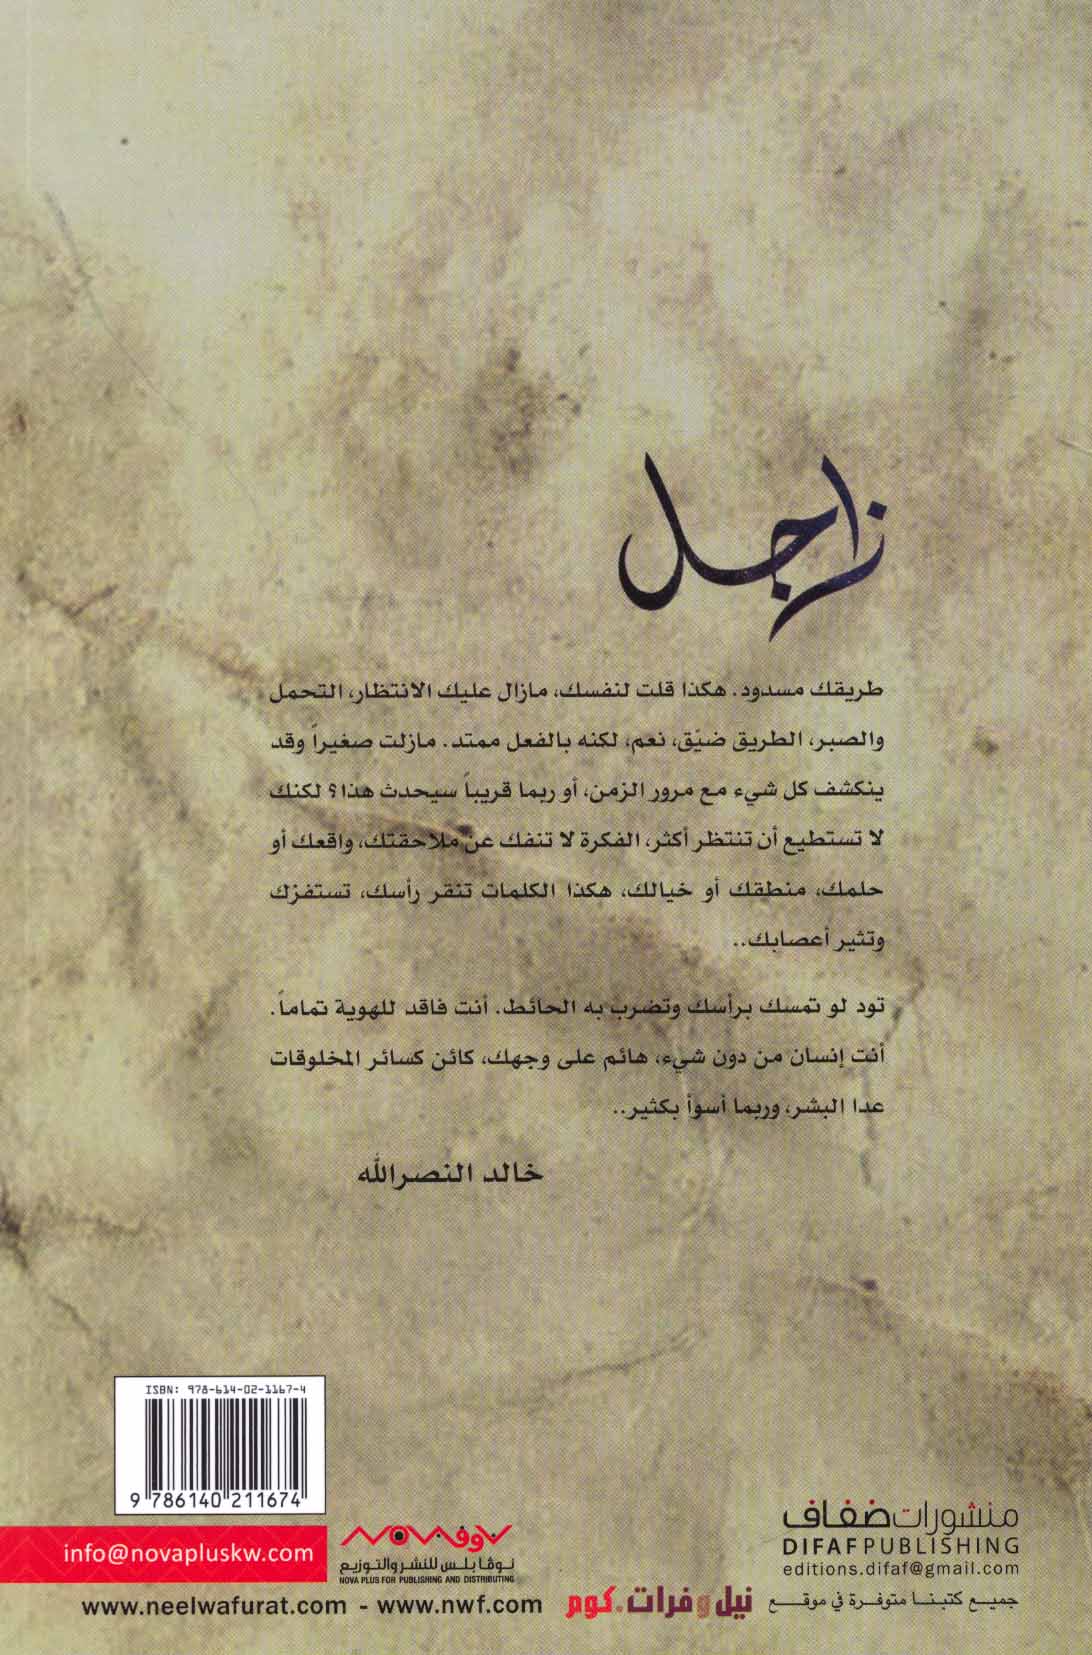 زاجل
طريقك مسدود. هكذا قلت لنفسك، مازال عليك الانتظار، التحمل
والصبر، الطريق ضيّق، نعم، لكنه بالفعل ممتد. مازلت صغيراً وقد
ينكشف كل شيء مع مرور الزمن، أو ربما قريباً سيحدث هذا؟ لكنك
لا تستطيع أن تنتظر أكثر، الفكرة لا تنفك عن ملاحقتك، واقعك أو
حلمك، منطقك أو خيالك، هكذا الكلمات تنقر رأسك، تستفزك
وتثير أعصابك..
تود لو تمسك برأسك وتضرب به الحائط. أنت فاقد للهوية تماماً.
أنت إنسان من دون شيء، هائم على وجهك، كائن كسائر المخلوقات
عدا البشر، وربما أسوأ بكثير..
خالد النصرالله
ISBN: 978-614-02-1167-4
9 786140 211674
منشورات ضفاف
DIFAF PUBLISHING
editions.difaf@gmail.com
نوفا
نوفا بلس للنشر والتوزيع
NOVA PLUS FOR PUBLISHING AND DISTRIBUTING
info@novapluskw.com
جميع كتبنا متوفرة في موقع
نيل وفرات.كوم
www.neelwafurat.com - www.nwf.com